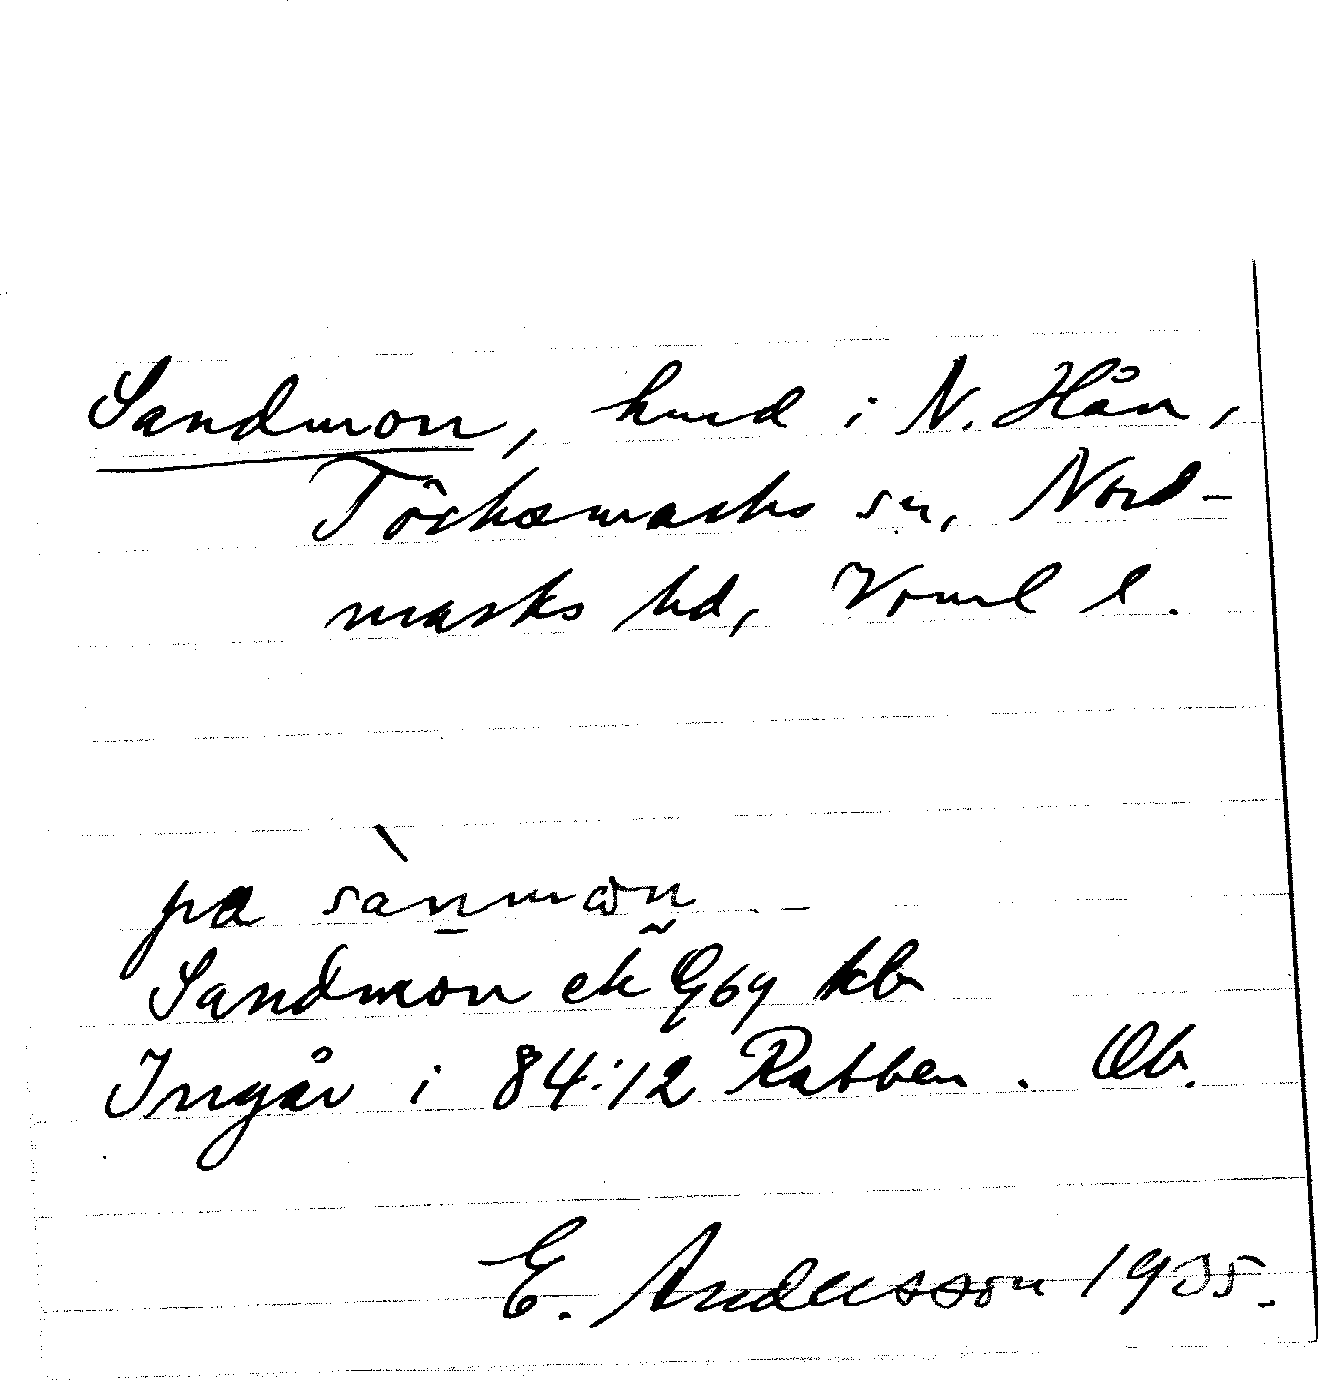 Sandmon, hmd i N. Hån,
Töcksmarks sn, Nord-
marks hd, Värml l.
på sànmωn
Sandmon ek G69 kb
Ingår i 84:12 Rabben. Ob.
E. Andersson 1935.